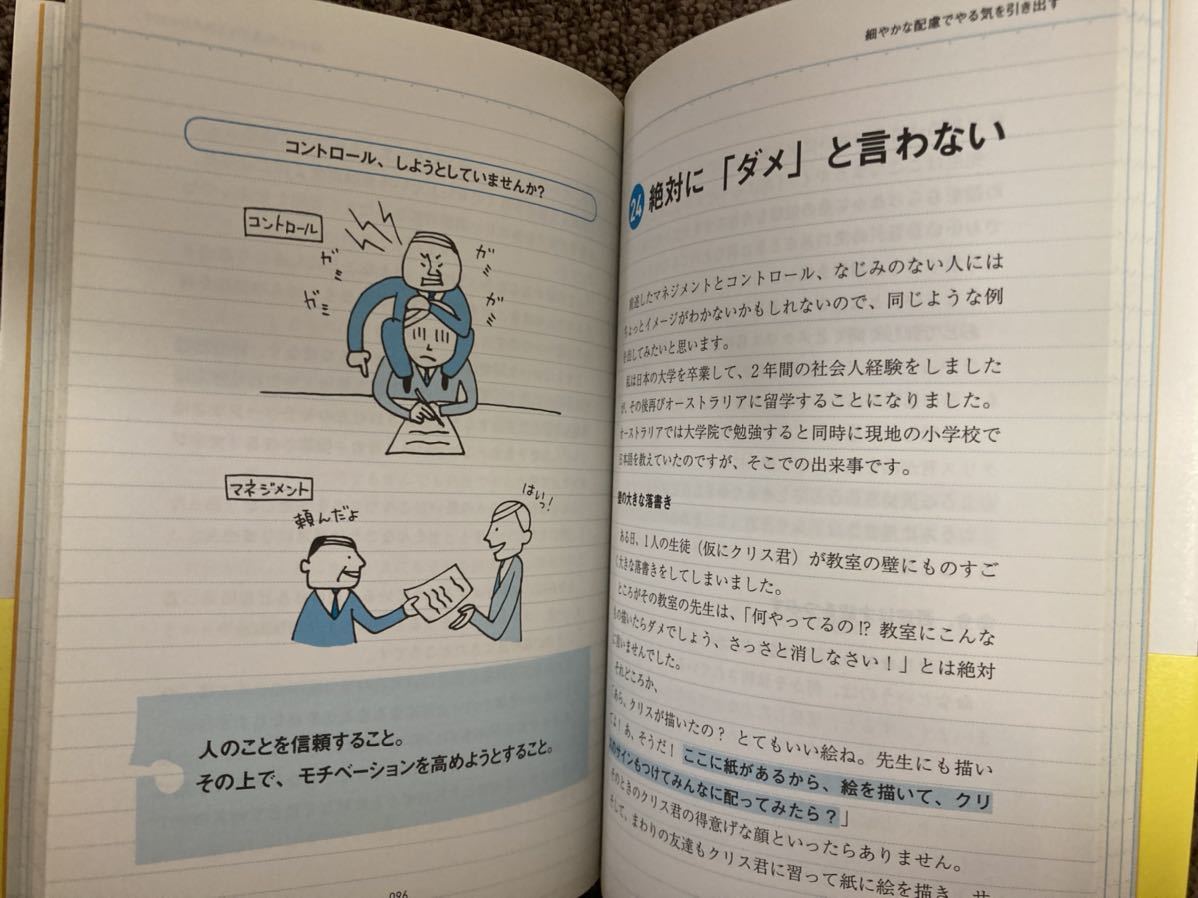 コントロール、しようとしていませんか?
コントロール
ガミ
ガミ
ガミ
ガミ
マネジメント
頼んだよ
はいっ!
人のことを信頼すること。
その上で、モチベーションを高めようとすること。
086
細やかな配慮でやる気を引き出す
24 絶対に「ダメ」と言わない
したマネジメントとコントロール、なじみのない人には
ちょっとイメージがわかないかもしれないので、同じような例
を出してみたいと思います。
私は日本の大学を卒業して、2年間の社会人経験をしました
が、その後再びオーストラリアに留学することになりました。
オーストラリアでは大学院で勉強すると同時に現地の小学校で
日本語を教えていたのですが、そこでの出来事です。
壁の大きな落書き
ある日、1人の生徒(仮にクリス君)が教室の壁にものすご
く大きな落書きをしてしまいました。
ところがその教室の先生は、「何やってるの!? 教室にこんな
もの描いたらダメでしょう、さっさと消しなさい!」とは絶対
に言いませんでした。
それどころか、
「あら、クリスが描いたの? とてもいい絵ね。先生にも描い
てよ! あ、そうだ! ここに紙があるから、絵を描いて、クリ
のサインもつけてみんなに配ってみたら?」
そのときのクリス君の得意げな顔といったらありません。
そして、まわりの友達もクリス君に習って紙に絵を描き、サ